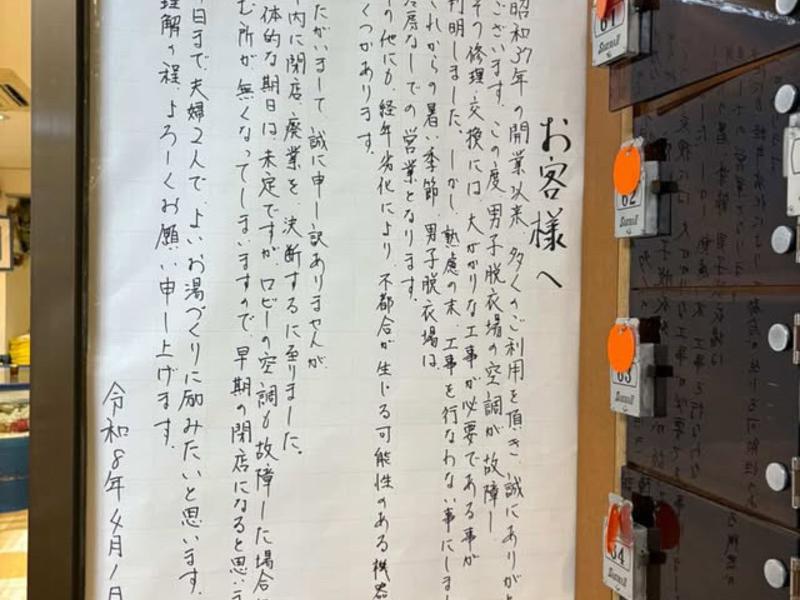 お客様へ
昭和37年の開業以来、多くのご利用を頂き、誠にありがと
ございます。この度、男子脱衣場の空調が故障し
その修理、交換には、大がかりな工事が必要である事が
判明しました。しかし、熟慮の末、工事を行なわない事にしまし
これからの暑い季節、男子脱衣場は
房なしでの営業となります。
の他にも、経年劣化により、不都合が生じる可能性のある機器
くつかあります。
たがいまして、誠に申し訳ありませんが、
内に閉店、廃業を、決断するに至りました。
体的な期日は、未定ですが、ロビーの空調も故障した場合
む所が無くなってしまいますので、早期の閉店になると思い
日まで、夫婦2人で、よいお湯づくりに励みたいと思います。
理解の程、よろしくお願い申し上げます。
令和8年4月1日
61
62
63
64